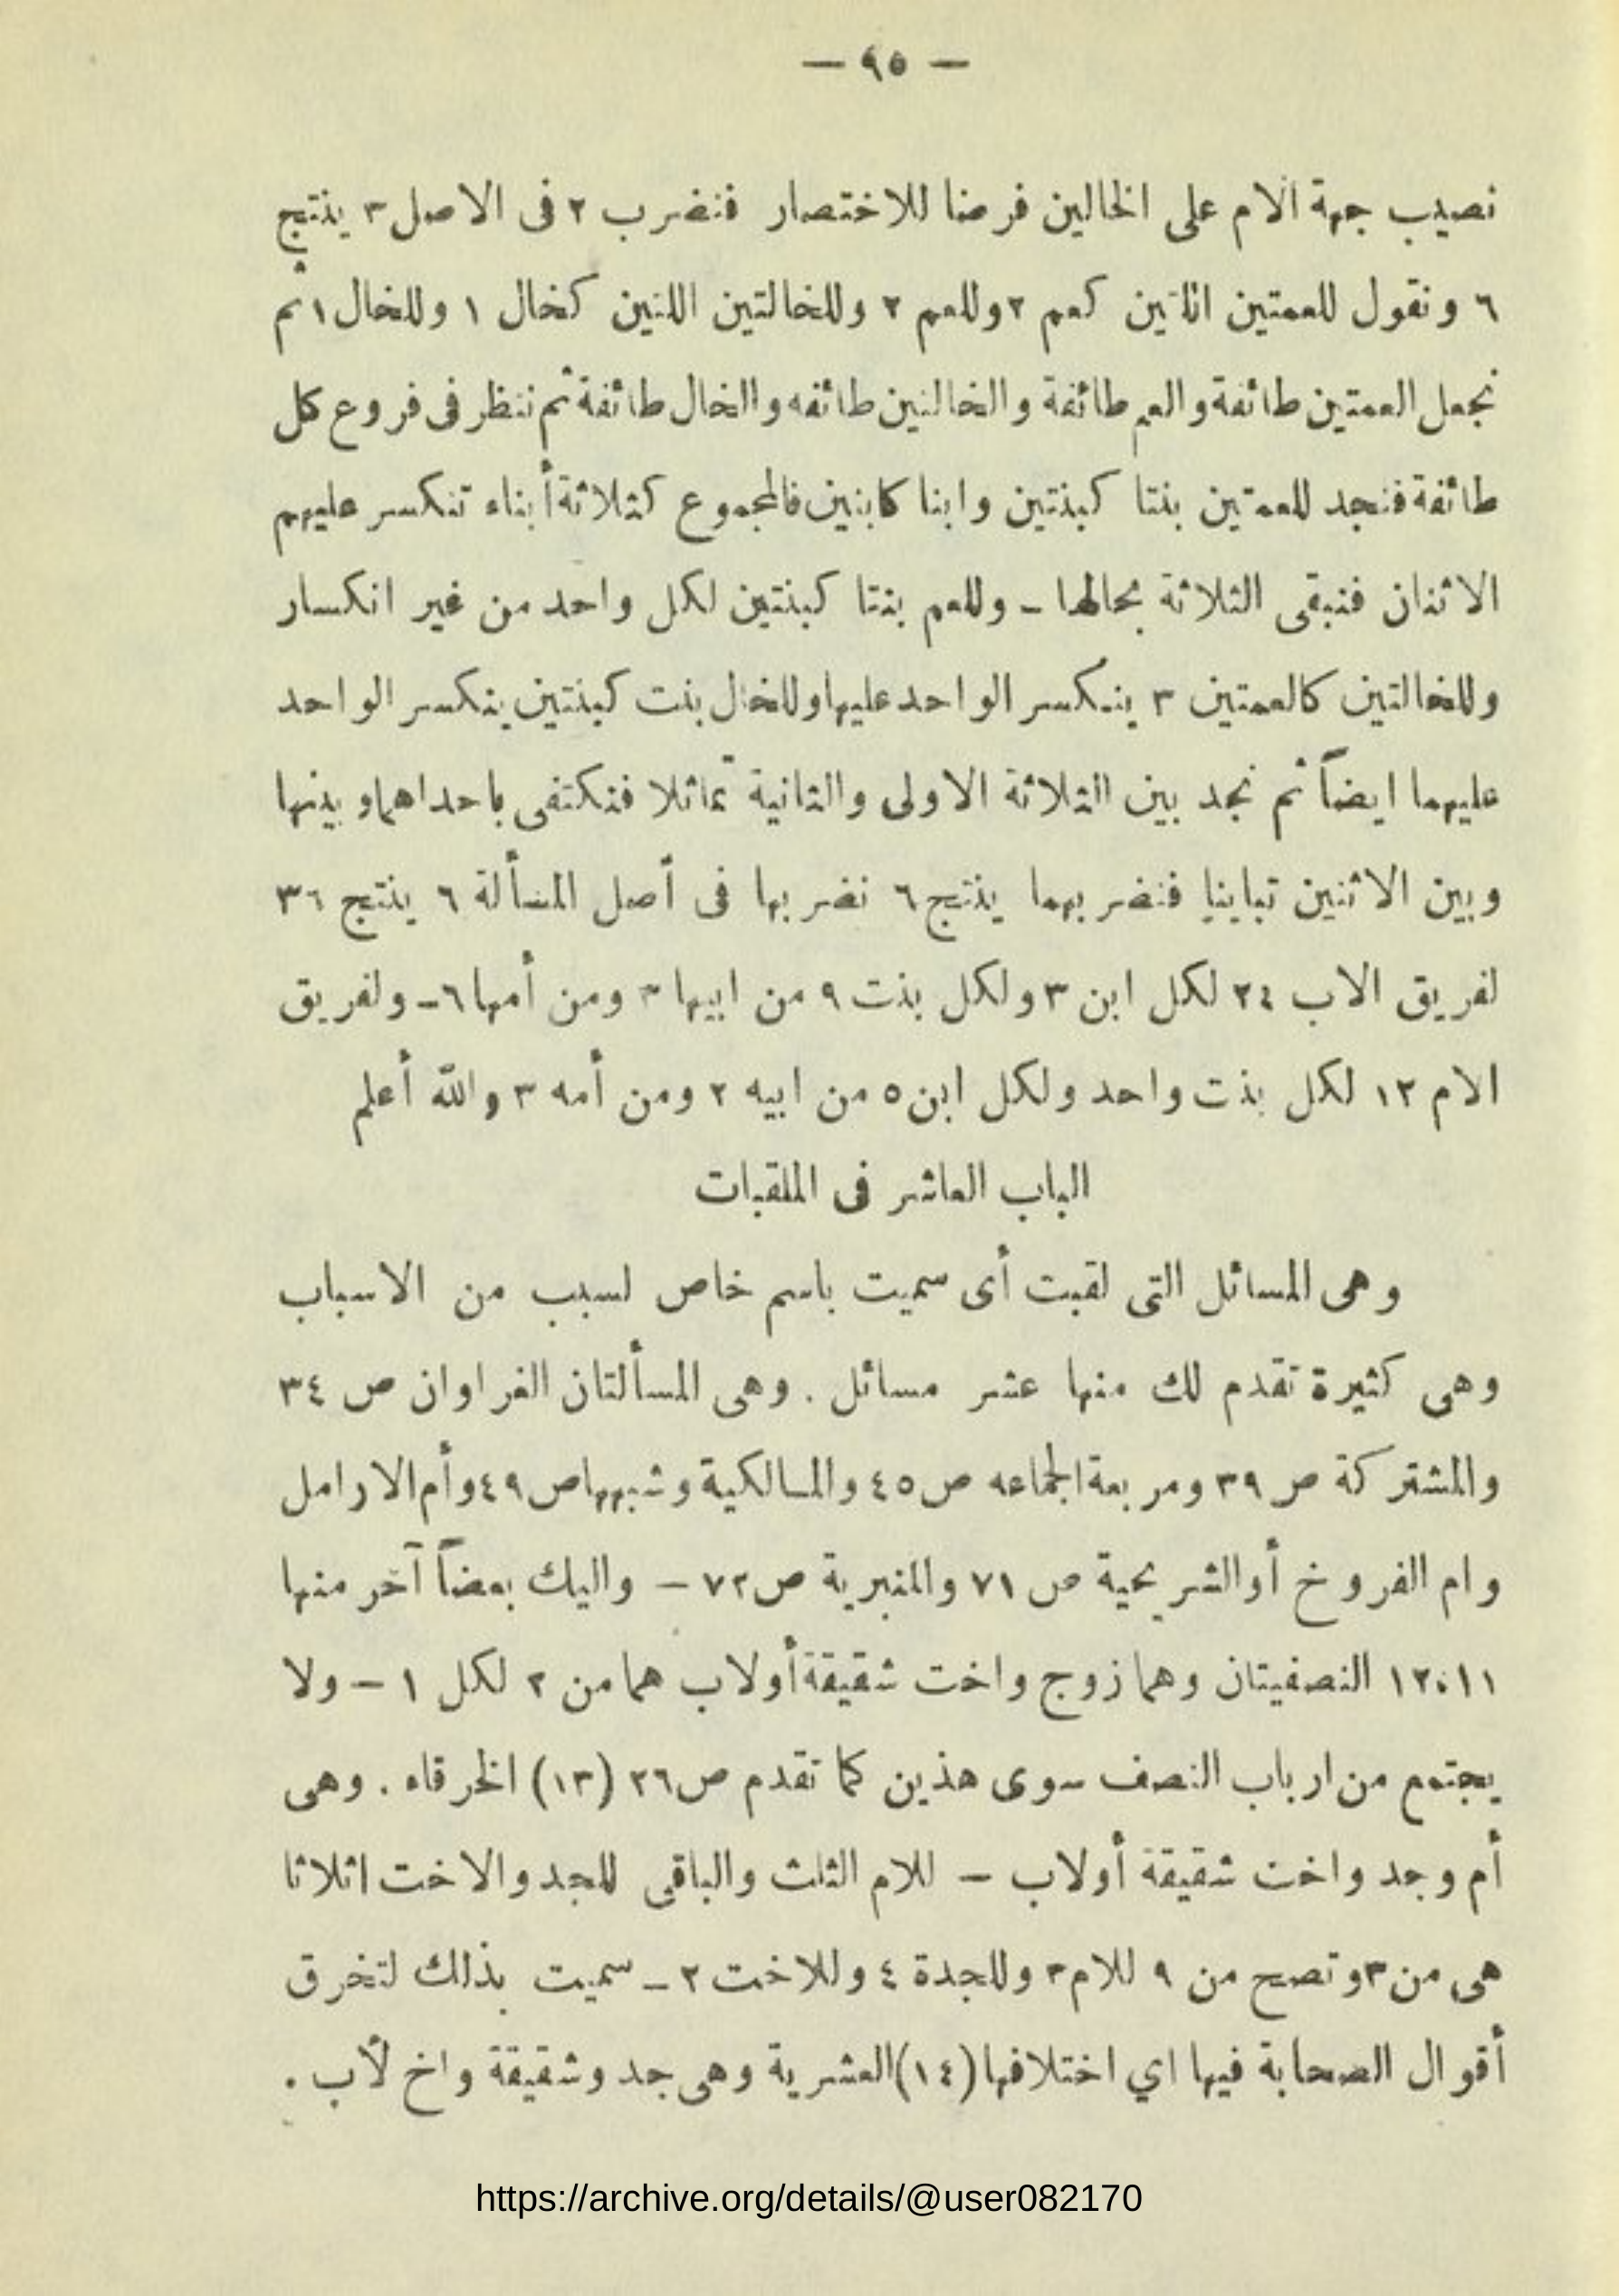 — ٩٥ —
نصيب جهة الام على الخالين فرضا للاختصار فنضرب ٢ فى الاصل ٣ ينتج
٦ ونقول للعمتين اللتين كعم ٢ وللعم ٢ وللخالتين اللتين كخال ١ وللخال ١ ثم
نجعل العمتين طائفة والعم طائفة والخالتين طائفه والخال طائفة ثم ننظر فى فروع كل
طائفة فنجد للعمتين بنتا كبنتين وابنا كابنين فالمجموع كثلاثة أبناء تنكسر عليهم
الاثنان فنبقى الثلاثة بحالها ـ وللعم بنتا كبنتين لكل واحد من غير انكسار
وللخالتين كالعمتين ٣ ينكسر الواحد عليها وللخال بنت كبنتين ينكسر الواحد
عليهما ايضاً ثم نجد بين الثلاثة الاولى والثانية تماثلا فنكتفى باحداهما وبينها
وبين الاثنين تباينا فنضربهما ينتج ٦ نضربها فى أصل المسألة ٦ ينتج ٣٦
لفريق الاب ٢٤ لكل ابن ٣ ولكل بنت ٩ من ابيها ٣ ومن أمها ٦ ـ ولفريق
الام ١٢ لكل بنت واحد ولكل ابن ٥ من ابيه ٢ ومن أمه ٣ والله أعلم
الباب العاشر فى الملقبات
وهى المسائل التى لقبت أى سميت باسم خاص لسبب من الاسباب
وهى كثيرة تقدم لك منها عشر مسائل . وهى المسألتان الغراوان ص ٣٤
والمشتركة ص ٣٩ ومربعة الجماعه ص ٤٥ والمالكية وشبهها ص ٤٩ وأم الارامل
وام الفروخ أو الشريحية ص ٧١ والمنبرية ص ٧٢ – واليك بعضاً آخر منها
١٢،١١ النصفيتان وهما زوج واخت شقيقة أولاب هما من ٢ لكل ١ – ولا
يجتمع من ارباب النصف سوى هذين كما تقدم ص ٢٦ (١٣) الخرقاء . وهى
أم وجد واخت شقيقة أولاب – للام الثلث والباقى للجد والاخت اثلاثا
هى من ٣ وتصح من ٩ للام ٣ وللجدة ٤ وللاخت ٢ ـ سميت بذلك لتخرق
أقوال الصحابة فيها اي اختلافها (١٤) العشرية وهى جد وشقيقة واخ لأب .
https://archive.org/details/@user082170